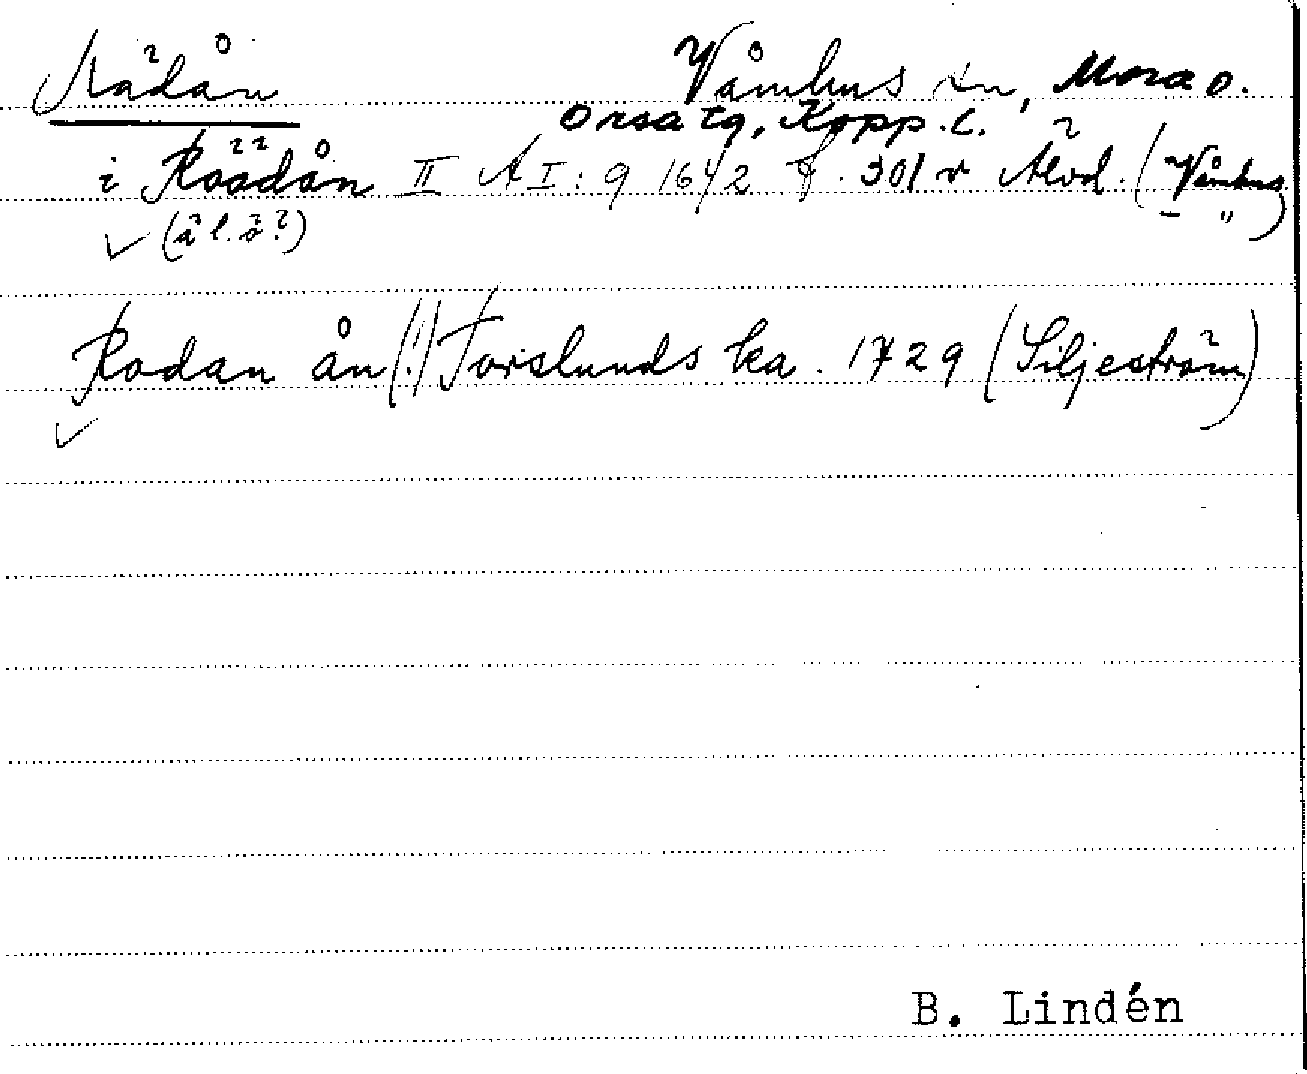 Nädån Våmhus sn, Mora o.
Orsa tg, Kopp. l.
i Röädån II A I: 9 1642 f. 301 v Älvd. (Våmhus
✓ (ä l. ö?) – " )
Rodan ån (!) Forslunds ka. 1729 (Siljeström)
✓
B. Lindén